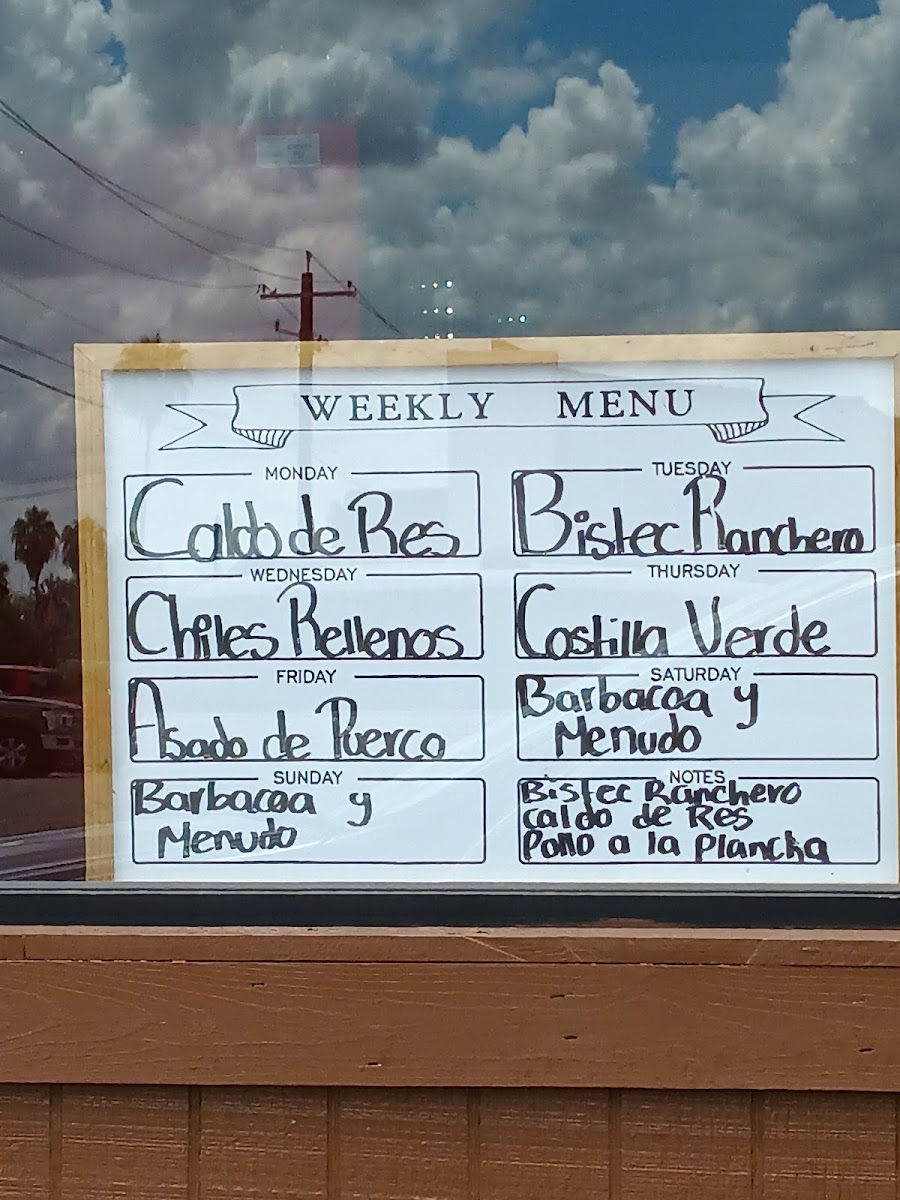 WEEKLY MENU
MONDAY
Caldo de Res
TUESDAY
Bistec Ranchero
WEDNESDAY
Chiles Rellenos
THURSDAY
Costilla Verde
FRIDAY
Asado de Puerco
SATURDAY
Barbacoa y
Menudo
SUNDAY
Barbacoa y
Menudo
NOTES
Bistec Ranchero
caldo de Res
Pollo a la Plancha